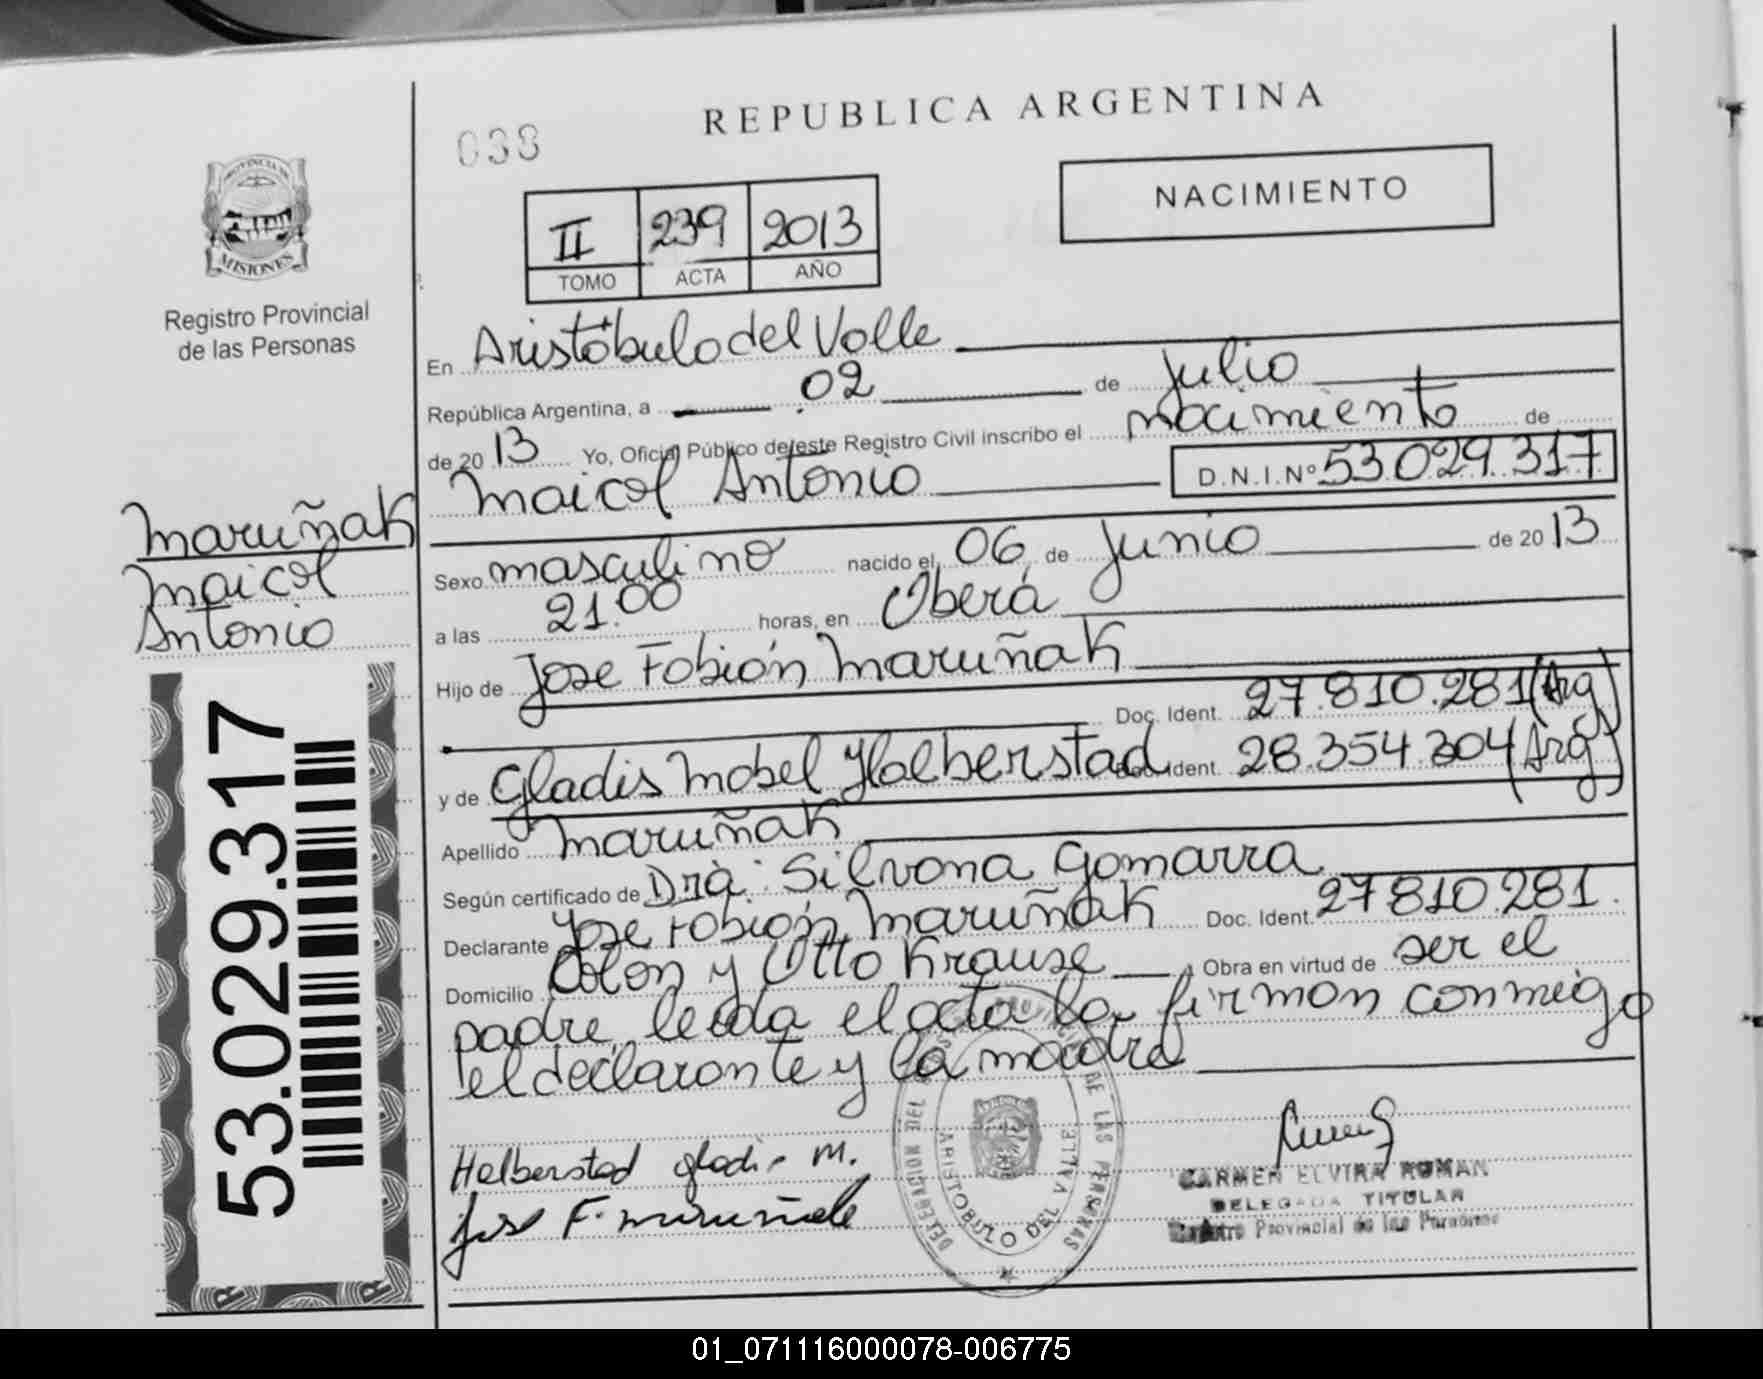 038
REPUBLICA ARGENTINA
NACIMIENTO
II 239 2013
TOMO ACTA AÑO
PROVINCIA DE
MISIONES
Registro Provincial
de las Personas
En Aristóbulo del Valle
República Argentina, a 02 de Julio
de 20 13 Yo, Oficial Público de/este Registro Civil inscribo el nacimiento de
Maicol Antonio D.N.I.Nº 53.029.317
Maruñak
Maicol
Antonio
Sexo masculino nacido el 06 de Junio de 20 13
a las 21.00 horas, en Oberá
Hijo de Jose Fabián Maruñak
Doc. Ident. 27.810.281 (Arg)
y de Gladis Mabel Halberstad Doc. Ident. 28.354.304 (Arg)
Apellido Maruñak
Según certificado de Dra: Silvana Gomarra
Declarante Jose Fabián Maruñak Doc. Ident. 27.810.281.
Domicilio Colon y Otto Krause Obra en virtud de ser el
padre, leída el acta la firman conmigo
el declarante y la madre
53.029.317
Halberstad Gladis M.
Jose F. Maruñak
DELEGACION DEL REGISTRO PROVINCIAL DE LAS PERSONAS
ARISTOBULO DEL VALLE
CARMEN ELVIRA ROMAN
DELEGADA TITULAR
Registro Provincial de las Personas
01_071116000078-006775